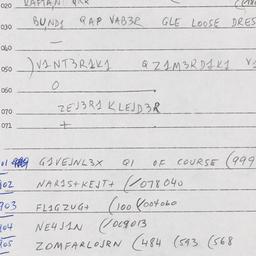 020 KAPTAN
030 BUND1 9AP VAB3R GLE LOOSE DRES
040 —
050 )V1NT3R1K1 QZ1M3RD1K1 V1
060 O
070 ZEJ3R1 KLEJD3R
071 +
G1VEJNL3X Q1 OF COURSE (999
902 NAR1S+KEJT+ (/078040
903 FL1GZUG+ (100 (/004060
904 NE4J1N (/009013
905 ZOMFARLOJRN (484 (593 (568